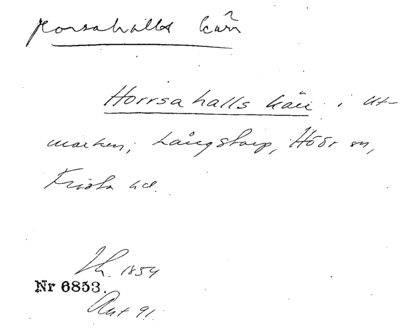 Horsahalls kärr
Horrsahalls kärr i Ut-
marken, Långstorp, Höör sn,
Frosta hd.
1854
Nr 6853.
91